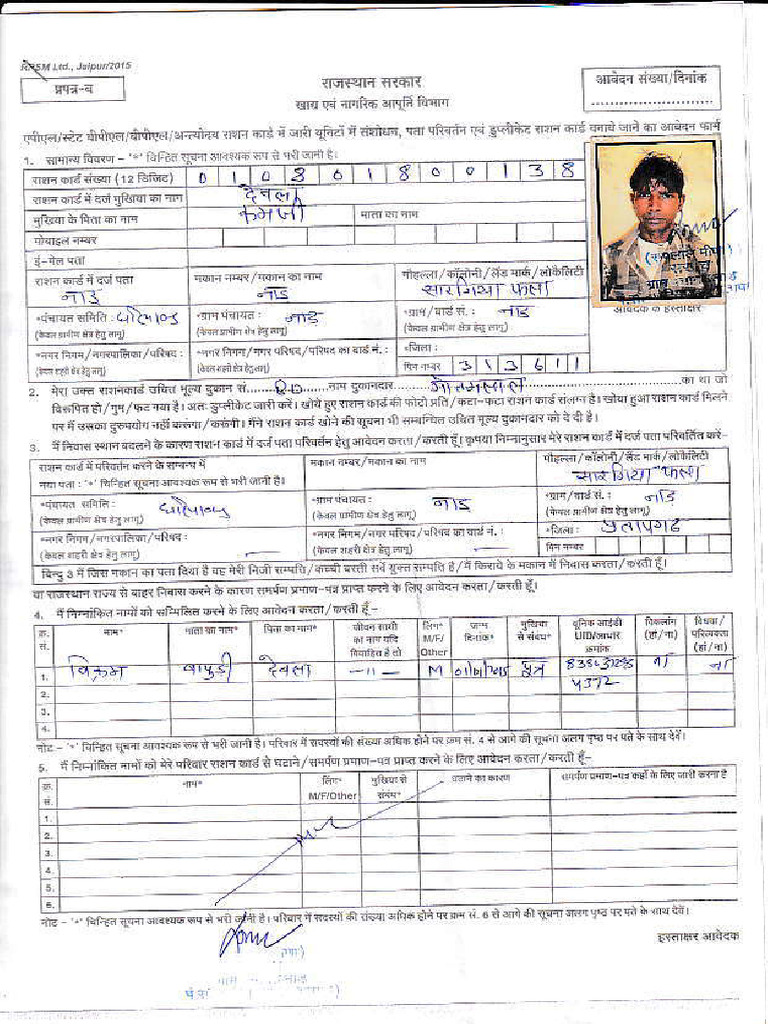 RPSM Ltd., Jaipur/2015
प्रपत्र-ब
राजस्थान सरकार
आवेदन संख्या/दिनांक
खाद्य एवं नागरिक आपूर्ति विभाग
एपीएल/स्टेट बीपीएल/बीपीएल/अन्त्योदय राशन कार्ड में जारी यूनिटों में संशोधन, पता परिवर्तन एवं डुप्लीकेट राशन कार्ड बनाये जाने का आवेदन फार्म
1. सामान्य विवरण – '*' चिन्हित सूचना आवश्यक रूप से भरी जानी है।
राशन कार्ड संख्या (12 डिजिट)
राशन कार्ड में दर्ज मुखिया का नाम देवला
मुखिया के पिता का नाम कमजी माता का नाम
मोबाइल नम्बर
ई-मेल पता
राशन कार्ड में दर्ज पता मकान नम्बर/मकान का नाम मोहल्ला/कॉलोनी/लैंड मार्क/लोकेलिटी
नाड नाड सारगिया फला
*पंचायत समिति : *ग्राम पंचायत : नाड *ग्राम/वार्ड सं. : नाड
(केवल ग्रामीण क्षेत्र हेतु लागू) (केवल ग्रामीण क्षेत्र हेतु लागू) (केवल ग्रामीण क्षेत्र हेतु लागू)
*नगर निगम/नगरपालिका/परिषद : *नगर निगम/नगर परिषद/परिषद का वार्ड नं. : *जिला :
(केवल शहरी क्षेत्र हेतु लागू) (केवल शहरी क्षेत्र हेतु लागू) पिन नम्बर 313611
आवेदक के हस्ताक्षर
2. मेरा उक्त राशनकार्ड उचित मूल्य दुकान सं. नाम दुकानदार का था जो
विरूपित हो/गुम/फट गया है। अतः डुप्लीकेट जारी करें। खोये हुए राशन कार्ड की फोटो प्रति/कटा-फटा राशन कार्ड संलग्न है। खोया हुआ राशन कार्ड मिलने
पर मैं उसका दुरुपयोग नहीं करूंगा/करूंगी। मैंने राशन कार्ड खोने की सूचना भी सम्बन्धित उचित मूल्य दुकानदार को दे दी है।
3. मैं निवास स्थान बदलने के कारण राशन कार्ड में दर्ज पता परिवर्तन हेतु आवेदन करता/करती हूँ। कृपया निम्नानुसार मेरे राशन कार्ड में दर्ज पता परिवर्तित करें-
राशन कार्ड में परिवर्तन करने के सम्बन्ध में मकान नम्बर/मकान का नाम मोहल्ला/कॉलोनी/लैंड मार्क/लोकेलिटी
नया पता : '*' चिन्हित सूचना आवश्यक रूप से भरी जानी है। सारगिया फला
*पंचायत समिति : *ग्राम पंचायत : नाड *ग्राम/वार्ड सं. : नाड
(केवल ग्रामीण क्षेत्र हेतु लागू) (केवल ग्रामीण क्षेत्र हेतु लागू) *जिला : प्रतापगढ
*नगर निगम/नगरपालिका/परिषद : *नगर निगम/नगर परिषद/परिषद का वार्ड नं. :
(केवल शहरी क्षेत्र हेतु लागू) (केवल शहरी क्षेत्र हेतु लागू) पिन नम्बर
बिन्दु 3 में जिस मकान का पता दिया है वह मेरी निजी सम्पत्ति/कच्ची बस्ती सर्वे युक्त सम्पति है/मैं किराये के मकान में निवास करता/करती हूँ।
या राजस्थान राज्य से बाहर निवास करने के कारण समर्पण प्रमाण-पत्र प्राप्त करने के लिए आवेदन करता/करती हूँ।
4. मैं निम्नांकित नामों को सम्मिलित करने के लिए आवेदन करता/करती हूँ –
क्र. सं. नाम* माता का नाम* पिता का नाम* जीवन साथी का नाम यदि विवाहित है तो लिंग* M/F/Other जन्म दिनांक* मुखिया से संबंध* यूनिक आईडी UID/आधार क्रमांक विकलांग (हां/ना) विधवा/परित्यक्ता (हां/ना)
1. विक्रम बापुडी देवला -11- M पुत्र ना ना
2.
3.
4.
नोट – '*' चिन्हित सूचना आवश्यक रूप से भरी जानी है। परिवार में सदस्यों की संख्या अधिक होने पर क्रम सं. 4 से आगे की सूचना अलग पृष्ठ पर पते के साथ देवें।
5. मैं निम्नांकित नामों को मेरे परिवार राशन कार्ड से घटाने/समर्पण प्रमाण-पत्र प्राप्त करने के लिए आवेदन करता/करती हूँ–
क्र. सं. नाम* लिंग* M/F/Other मुखिया से संबंध* घटाने का कारण समर्पण प्रमाण-पत्र कहाँ के लिए जारी करना है
1.
2.
3.
4.
5.
6.
नोट – '*' चिन्हित सूचना आवश्यक रूप से भरी जानी है। परिवार में सदस्यों की संख्या अधिक होने पर क्रम सं. 6 से आगे की सूचना अलग पृष्ठ पर पते के साथ देवें।
हस्ताक्षर आवेदक